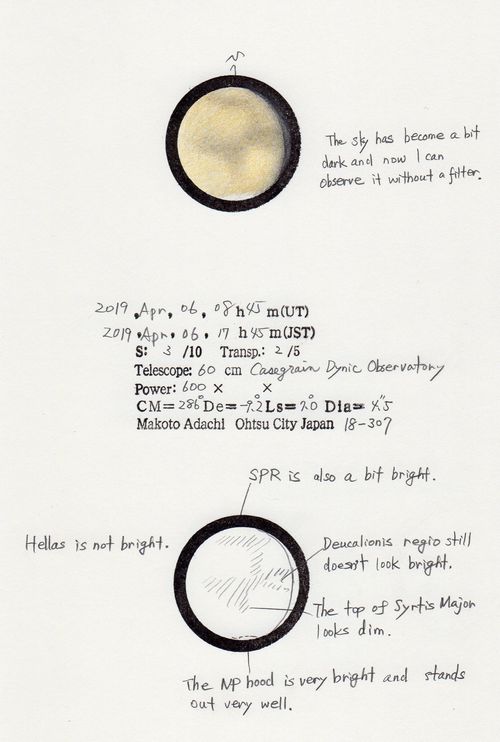 The sky has become a bit
dark and now I can
observe it without a filter.
2019, Apr, 06, 08 h 45 m (UT)
2019, Apr, 06, 17 h 45 m (JST)
S: 3 /10 Transp.: 2 /5
Telescope: 60 cm Casegrain Dynic Observatory
Power: 600 × ×
CM= 286° De= -9.2° Ls= 7.0° Dia= 4."5
Makoto Adachi Ohtsu City Japan 18-307
SPR is also a bit bright.
Hellas is not bright.
Deucalionis regio still
doesn't look bright.
The top of Syrtis Major
looks dim.
The NP hood is very bright and stands
out very well.